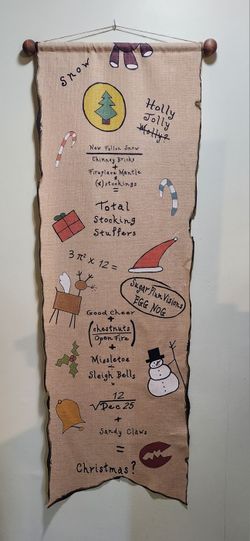 Snow
Holly
Jolly
Wolly?
New Fallen Snow
Chimney Bricks
+
Fireplace Mantle
(x) stockings
=
Total
Stocking
Stuffers
3π² x 12 =
Sugar Plum Visions
EGG NOG
Good Cheer
+
chestnuts
Open Fire
+
Missletoe
Sleigh Bells
12
√Dec 25
+
Sandy Claws
=
Christmas?